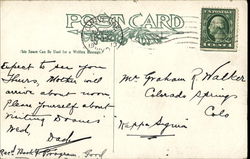 POST CARD
This Space Can Be Used for a Written Message
Expect to see you
Thurs, Mother will
arrive about noon
Please Yourself about
visiting
Wed,
Dad
Mr Graham R Walker
Colorado Springs
Colo
Kappa Sigma
Rec'd Book & Program, Good